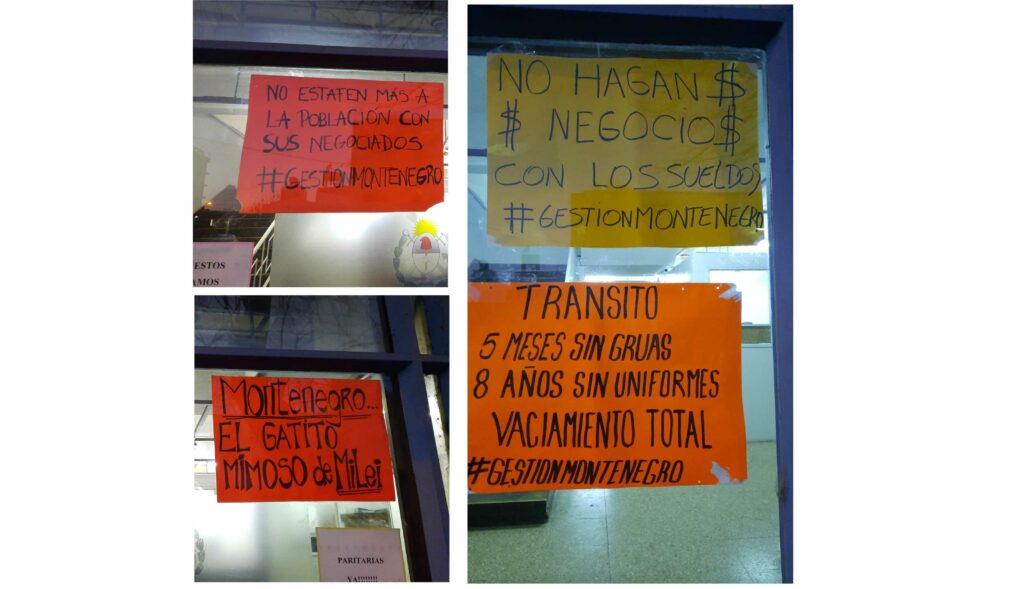 NO ESTAFEN MÁS A
LA POBLACIÓN CON
SUS NEGOCIADOS
#GESTIONMONTENEGRO
ESTOS
AMOS
Montenegro...
EL GATITO
MIMOSO de MiLei
PARITARIAS
YA!!!!!!!!
NO HAGAN $
$ NEGOCIO$
CON LOS SUELDOS
#GESTIONMONTENEGRO
TRANSITO
5 MESES SIN GRUAS
8 AÑOS SIN UNIFORMES
VACIAMIENTO TOTAL
#GESTIONMONTENEGRO